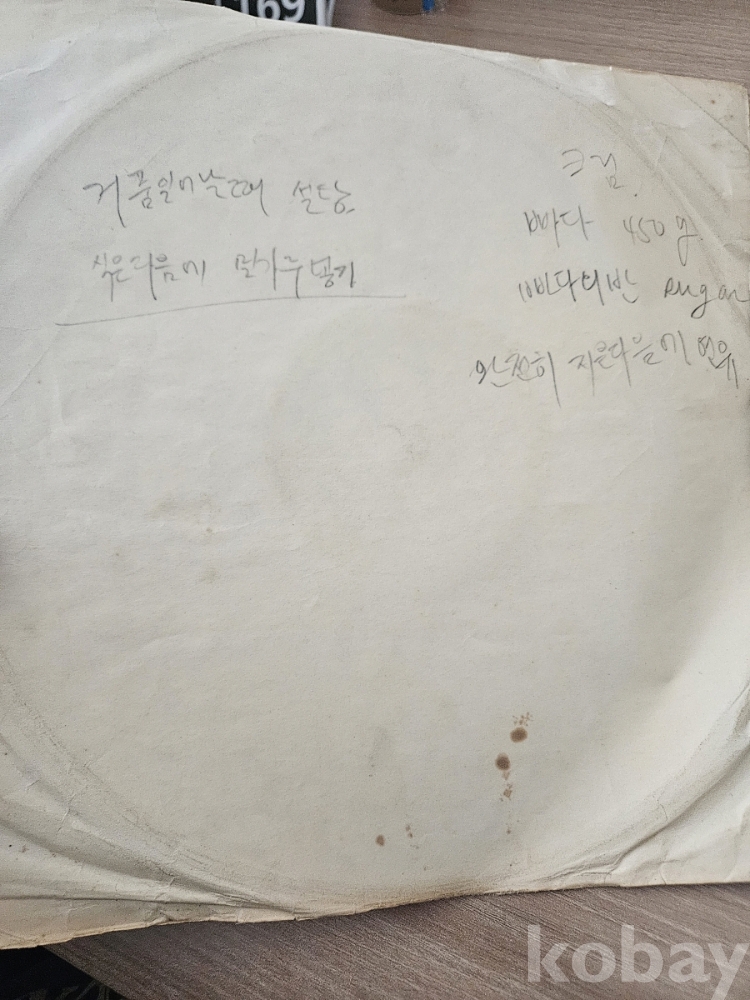 169
거품일어날때 설탕
식은다음에 밀가루 넣기
크림
빠다 450g
빠다의반 sugar
완전히 지은다음에 연유
kobay